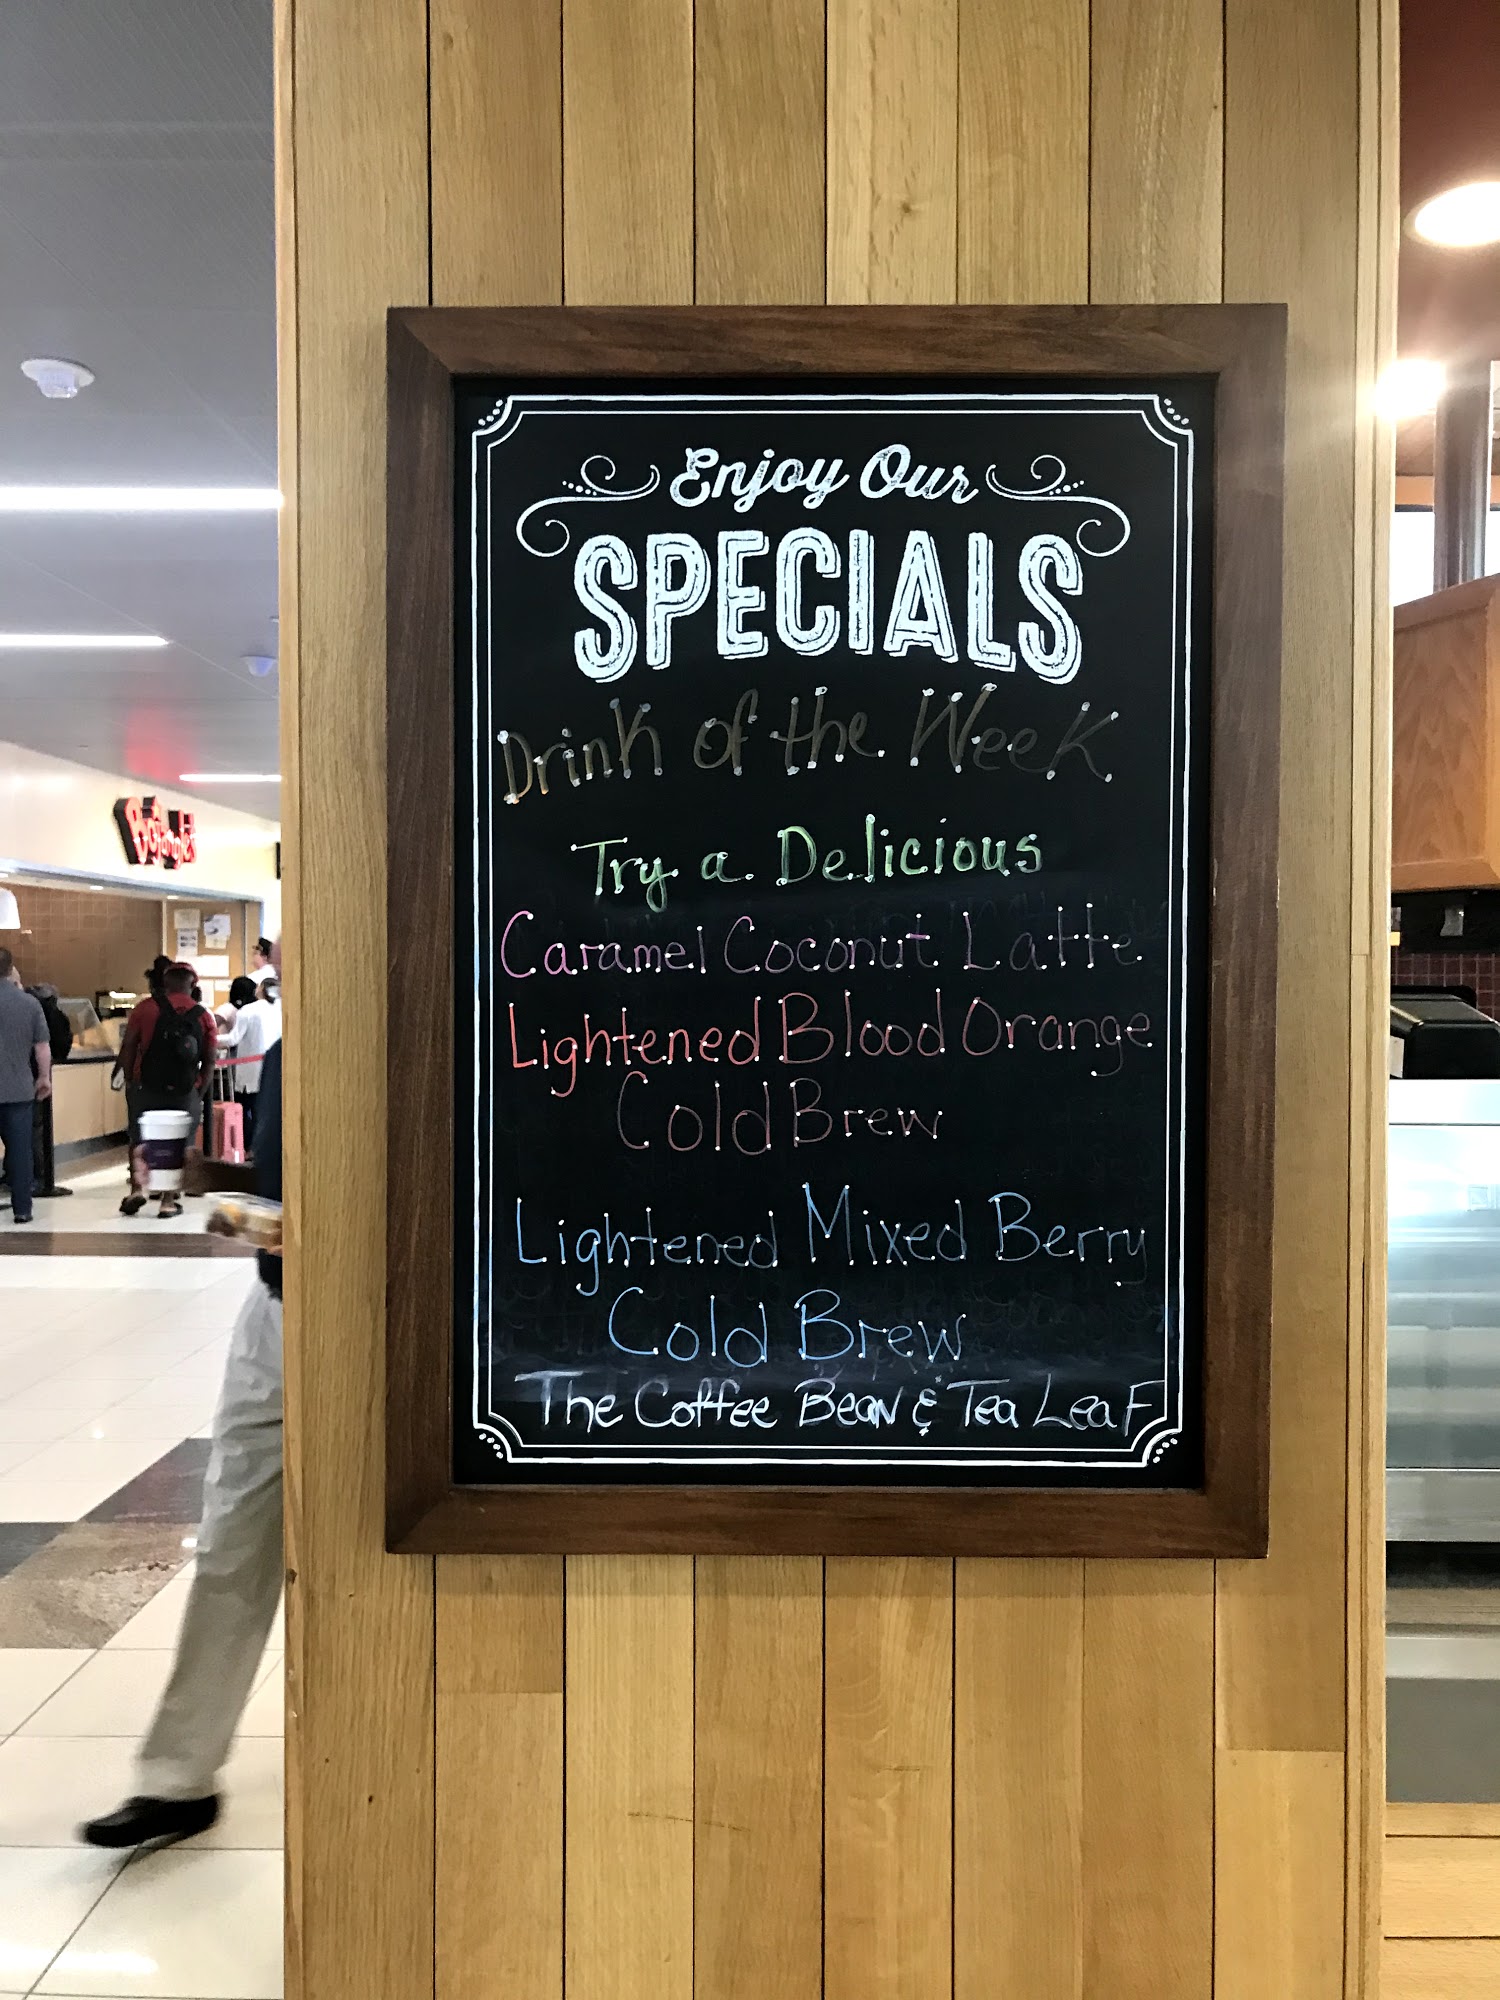 Enjoy Our
SPECIALS
Drink of the Week
Try a Delicious
Caramel Coconut Latte
Lightened Blood Orange
Cold Brew
Lightened Mixed Berry
Cold Brew
The Coffee Bean & Tea Leaf
Bojangles